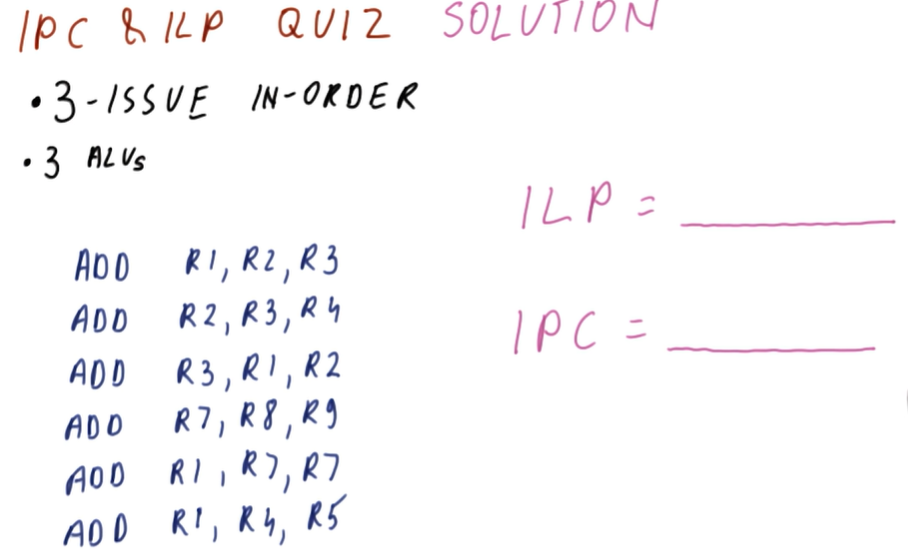 IPC & ILP QUIZ SOLUTION
• 3-ISSUE IN-ORDER
• 3 ALUs
ILP = ________
IPC = ________
ADD R1, R2, R3
ADD R2, R3, R4
ADD R3, R1, R2
ADD R7, R8, R9
ADD R1, R7, R7
ADD R1, R4, R5